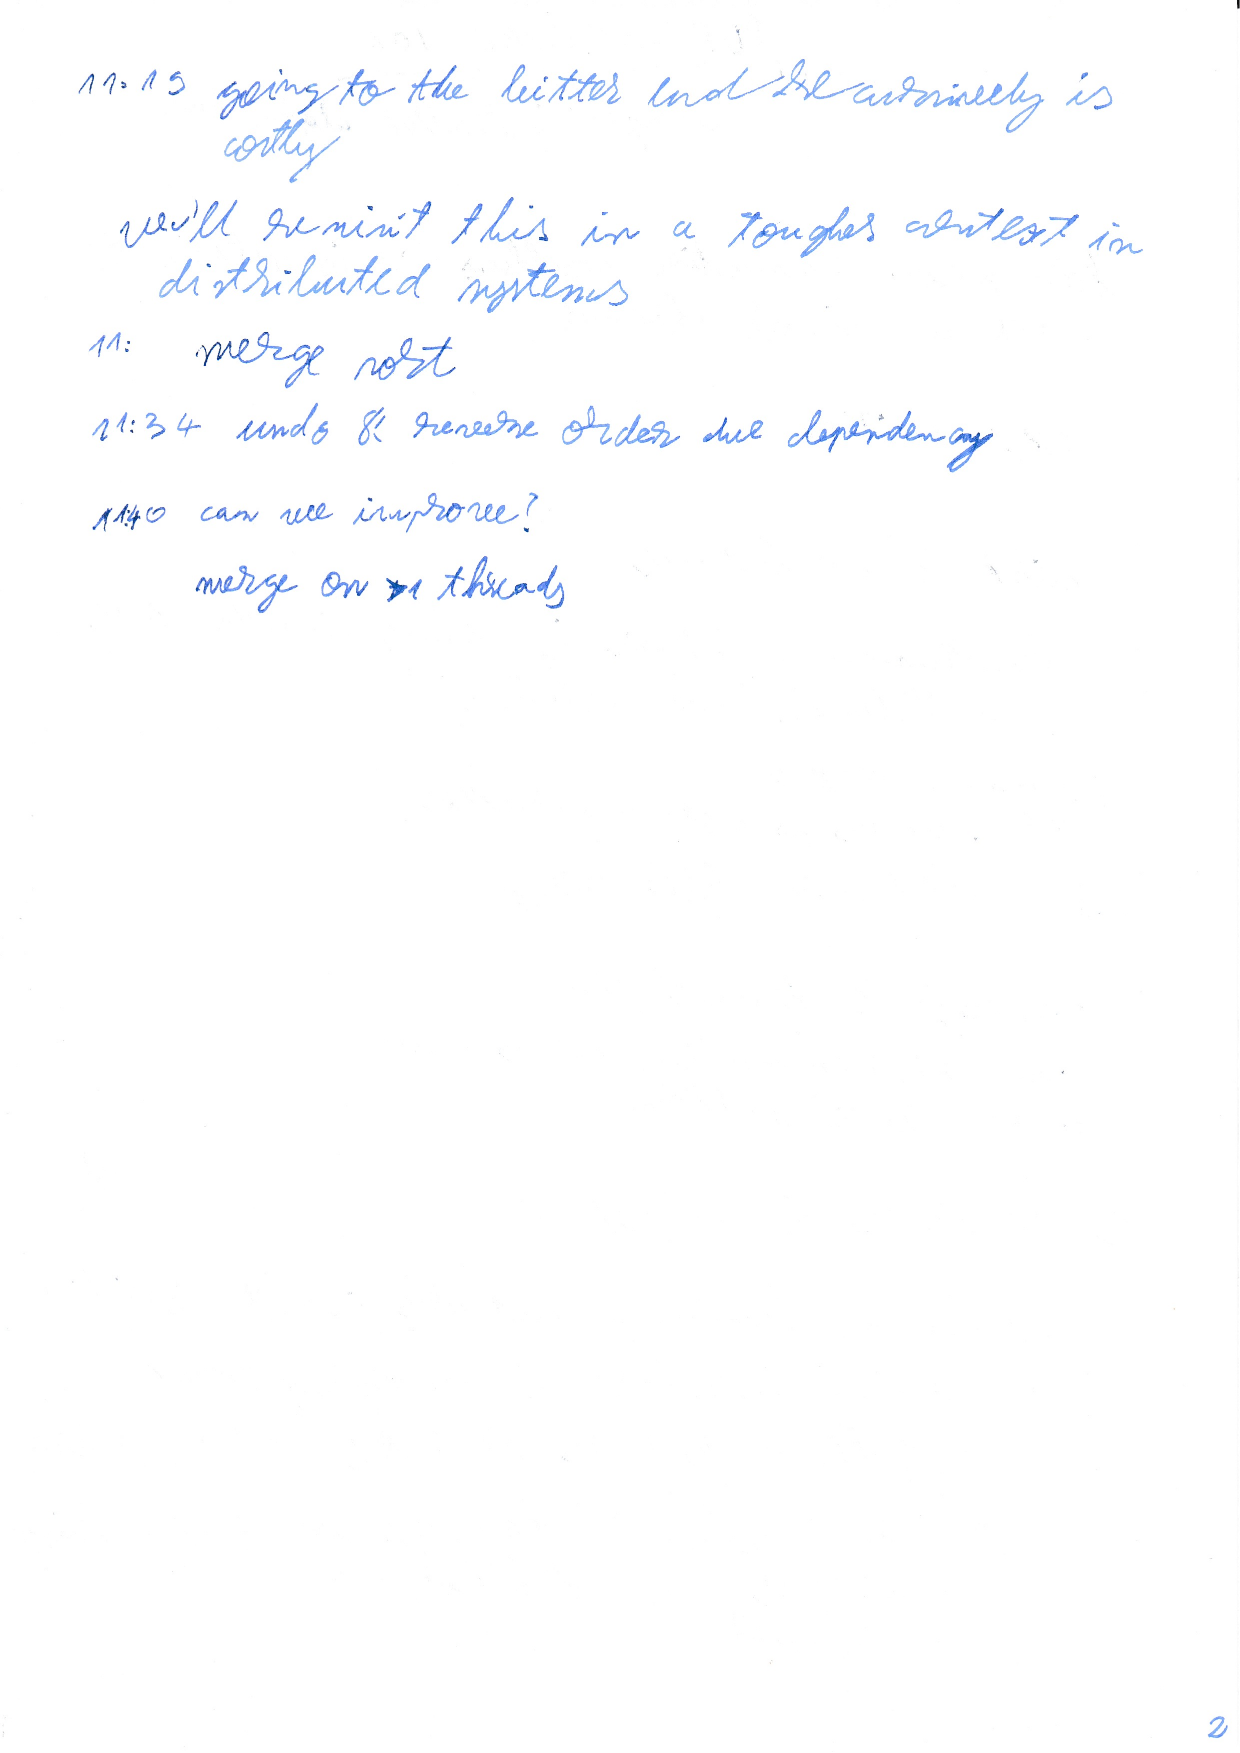 11:19 going to the bitter end recursively is
costly
we'll revisit this in a tougher context in
distributed systems
11: merge sort
11:34 undo & reverse order due dependency
11:40 can we improve?
merge on >1 threads
2